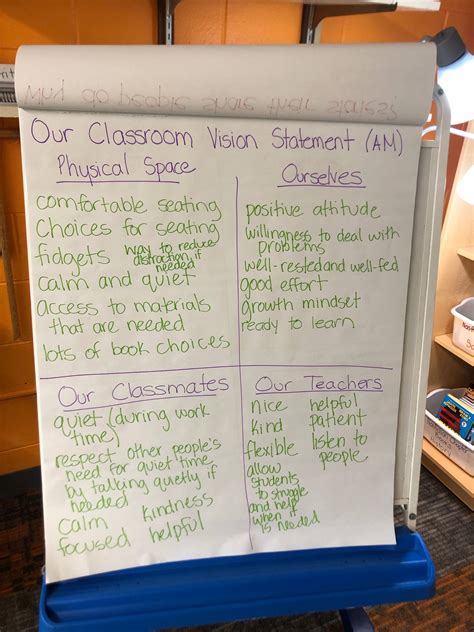 Our Classroom Vision Statement (AM)
Physical Space
comfortable seating
Choices for seating
fidgets way to reduce
distraction if
needed
calm and quiet
access to materials
that are needed
lots of book choices
Ourselves
positive attitude
willingness to deal with
problems
well-rested and well-fed
good effort
growth mindset
ready to learn
Our Classmates
quiet (during work
time)
respect other people's
need for quiet time
by talking quietly if
needed
calm kindness
focused helpful
Our Teachers
nice helpful
kind patient
flexible listen to
people
allow
students
to struggle
and help
when it
is needed